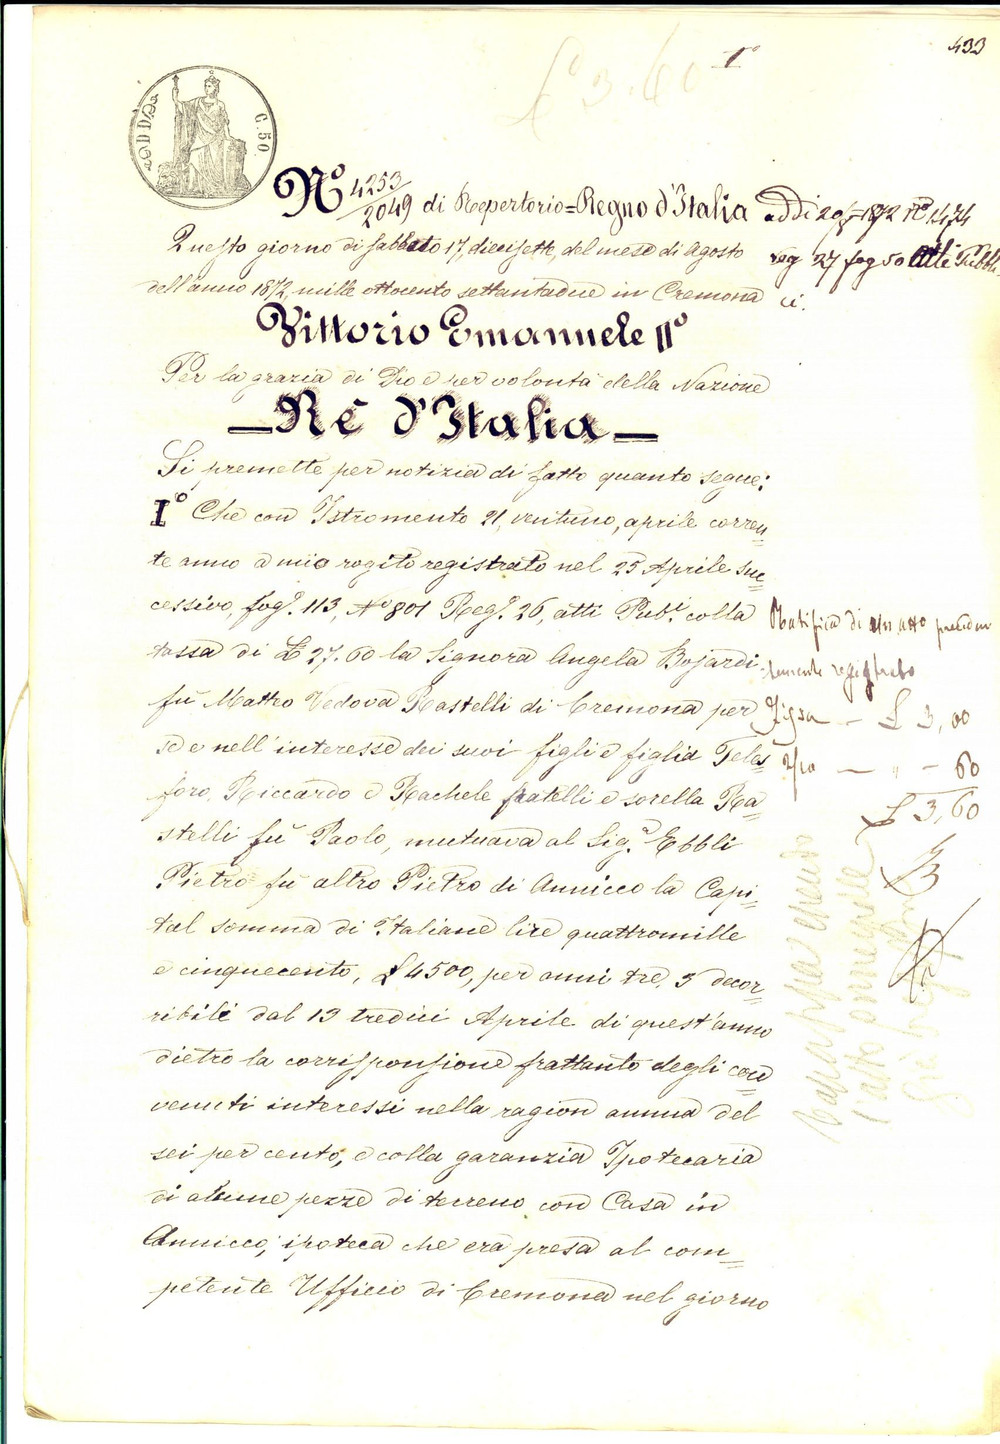 433
£ 3.60 1°
C. 50
N° 4253/2049 di Repertorio = Regno d'Italia
Questo giorno di sabbato 17, diecisette, del mese di Agosto
dell'anno 1872, mille ottocento settantadue in Cremona
Vittorio Emanuele II°
Per la grazia di Dio e per volontà della Nazione
Re d'Italia
Si premette per notizia di fatto quanto segue:
I° Che con Istromento 21, ventuno, aprile corren=
te anno a mio rogito registrato nel 25 Aprile suc=
cessivo, fog.° 113, N° 801 Reg.° 26, atti Pub.i colla
tassa di £ 27.60 la Signora Angela Bojardi
fu Matteo Vedova Rastelli di Cremona per
se e nell'interesse dei suoi figli e figlia Teles=
foro, Riccardo e Rachele fratelli e sorella Ra=
stelli fu Paolo, mutuava al Sig.r Ebbli
Pietro fu altro Pietro di Annicco la Capi=
tal somma di Italiane lire quattromille
e cinquecento, £ 4500, per anni tre, 3 decor=
ribili dal 13 tredici Aprile di quest'anno
dietro la corrisponsione frattanto degli con=
venuti interessi nella ragion annua del
sei per cento, e colla garanzia Ipotecaria
di alcune pezze di terreno con Casa in
Annicco, ipoteca che era presa al com=
petente Ufficio di Cremona nel giorno
addi 20/8 1872 N° 1474
reg 27 fog 50 Atti Pubbli
ci.
Ratifica di un atto preceden
temente registrato
Tassa — £ 3,00
2/10 — " — 60
£ 3,60
l'atto